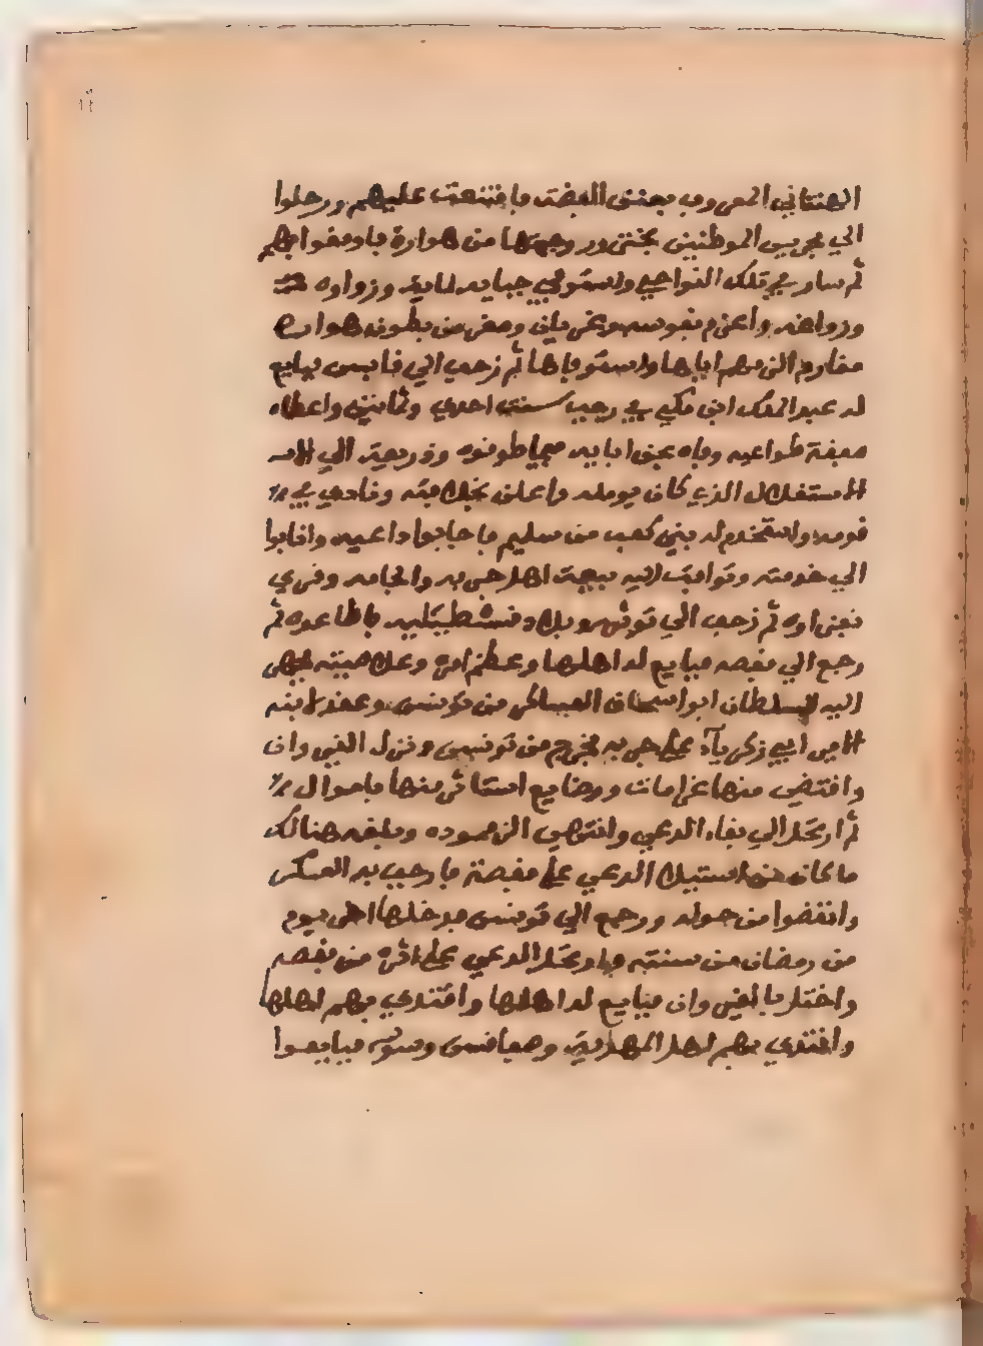 الهنتاني المعروف بعنق الفضة فامتنعت عليهم ورحلوا
الي مجريس الموطنين بجنزور وجهتها من هوارة فاوقعوا بهم
ثم سار في تلك النواحي واستوفي جباية لماية وزواوه
وزواغه واغرم نفوسه وغريان ومقر من بطون هوارة
مغارم الزمهم اياها واستوفاها ثم زحف الي قابس فبايع
له عبد الملك ابن مكي في رجب سنة احدي وثمانين واعطاه
صفقة طواعيه وفاء بحق ابايه فيما طوقوه وذريعة الي
الاستقلال الذي كان يومله واعلن بخلافته ونادي في
قومه واستخدم له بني كعب من سليم فاجابوا داعيه وانابوا
الي خدمته وتوافت اليه بيعة اهل جربه والحامه وقري
نفزاوه ثم زحف الي توزر وبلاد قسطيليه فاطاعوه ثم
رجع الي قفصه فبايع له اهلها وعظم امره وعلا صيته فجهز
اليه السلطان ابو اسحاق العساكر من تونس وعقد لابنه
الامير ابي زكرياء علي حربه فخرج من تونس ونزل القيروان
واقتضي منها غرامات ووضايع استاثر منها باموال
ثم ارتحل الي لقاء الدعي وانتهي الي قموده وبلغه هنالك
ما كان من استيلاء الدعي علي قفصة فارجف به العسكر
وانفضوا من حوله ورجع الي تونس فدخلها اخر يوم
من رمضان من سنته وارتحل الدعي علي اثره من قفصه
واحتل بالقيروان فبايع له اهلها واقتدي بهم اهلها
واقتدي بهم اهل المهدية وصفاقس وسوسه فبايعوا